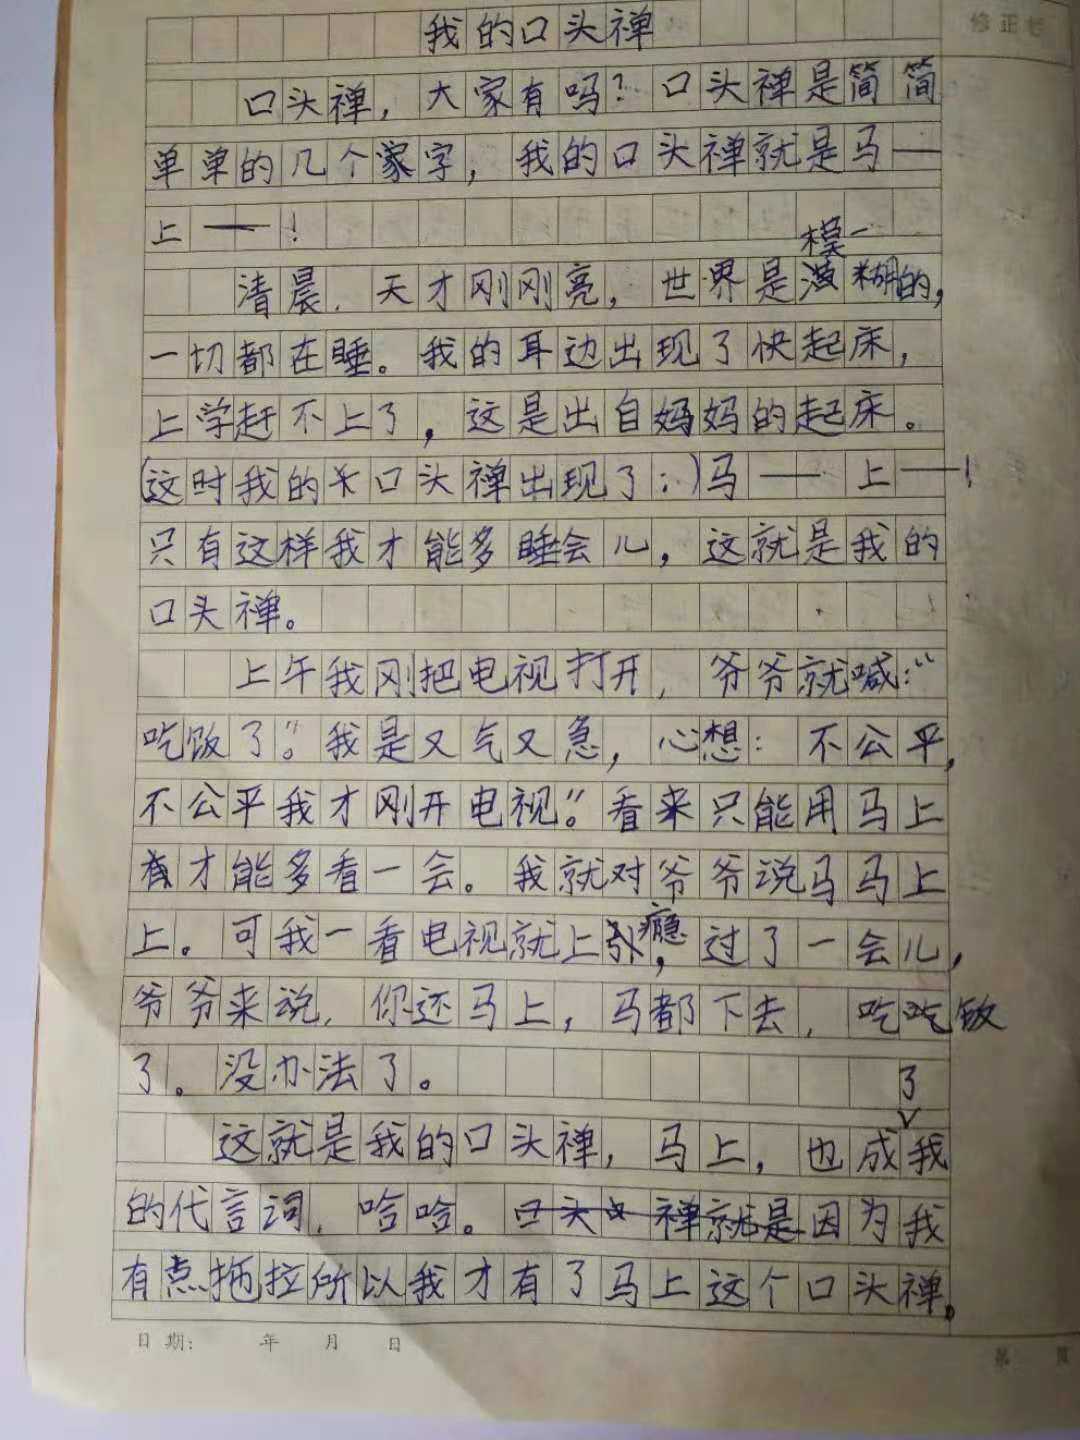 我的口头禅
修正栏
口头禅，大家有吗？口头禅是简简
单单的几个家字，我的口头禅就是马——
上——！
模
清晨，天才刚刚亮，世界是糊的，
一切都在睡。我的耳边出现了快起床，
上学赶不上了，这是出自妈妈的起床。
（这时我的口头禅出现了：）马——上——！
只有这样我才能多睡会儿，这就是我的
口头禅。
上午我刚把电视打开，爷爷就喊：“
吃饭了”。我是又气又急，心想：不公平，
不公平我才刚开电视”。看来只能用马上
才能多看一会。我就对爷爷说马马上
上。可我一看电视就上瘾，过了一会儿，
爷爷来说，你还马上，马都下去，吃吃饭
了。没办法了。
了
这就是我的口头禅，马上，也成我
的代言词，哈哈。口头禅就是因为我
有点拖拉所以我才有了马上这个口头禅。
日期：年月日
第 页